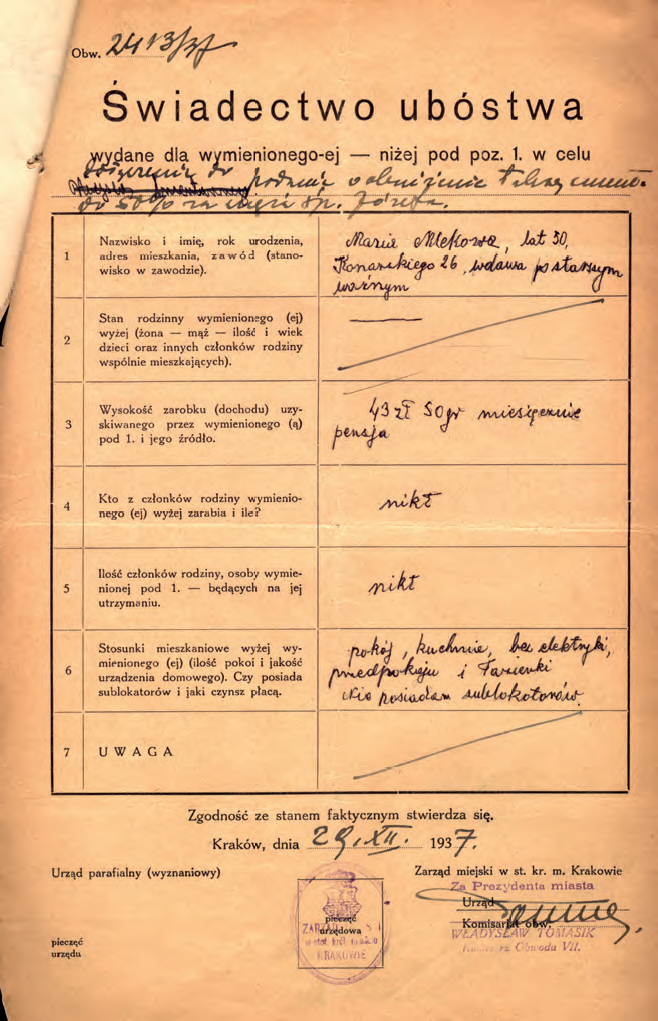 Obw. 2413/37
Świadectwo ubóstwa
wydane dla wymienionego-ej — niżej pod poz. 1. w celu
dołączenia do podania o obniżenie
do 50% za
1
Nazwisko i imię, rok urodzenia,
adres mieszkania, zawód (stano-
wisko w zawodzie).
Maria Mlekowa, lat 50,
Konarskiego 26, wdowa po starszym
woźnym
2
Stan rodzinny wymienionego (ej)
wyżej (żona — mąż — ilość i wiek
dzieci oraz innych członków rodziny
wspólnie mieszkających).
3
Wysokość zarobku (dochodu) uzy-
skiwanego przez wymienionego (ą)
pod 1. i jego źródło.
43 zł 50 gr miesięcznie
pensja
4
Kto z członków rodziny wymienio-
nego (ej) wyżej zarabia i ile?
nikt
5
Ilość członków rodziny, osoby wymie-
nionej pod 1. — będących na jej
utrzymaniu.
nikt
6
Stosunki mieszkaniowe wyżej wy-
mienionego (ej) (ilość pokoi i jakość
urządzenia domowego). Czy posiada
sublokatorów i jaki czynsz płacą.
pokój, kuchnia, bez elektryki,
przedpokoju i łazienki
Nie posiadam sublokatorów
7
UWAGA
Zgodność ze stanem faktycznym stwierdza się.
Kraków, dnia 29.XII. 1937.
Urząd parafialny (wyznaniowy)
Zarząd miejski w st. kr. m. Krakowie
Za Prezydenta miasta
Urząd
pieczęć
urzędowa
Komisariat obw.
WŁADYSŁAW TOMASIK
Obwodu VII.
KRAKOWIE
pieczęć
urzędu